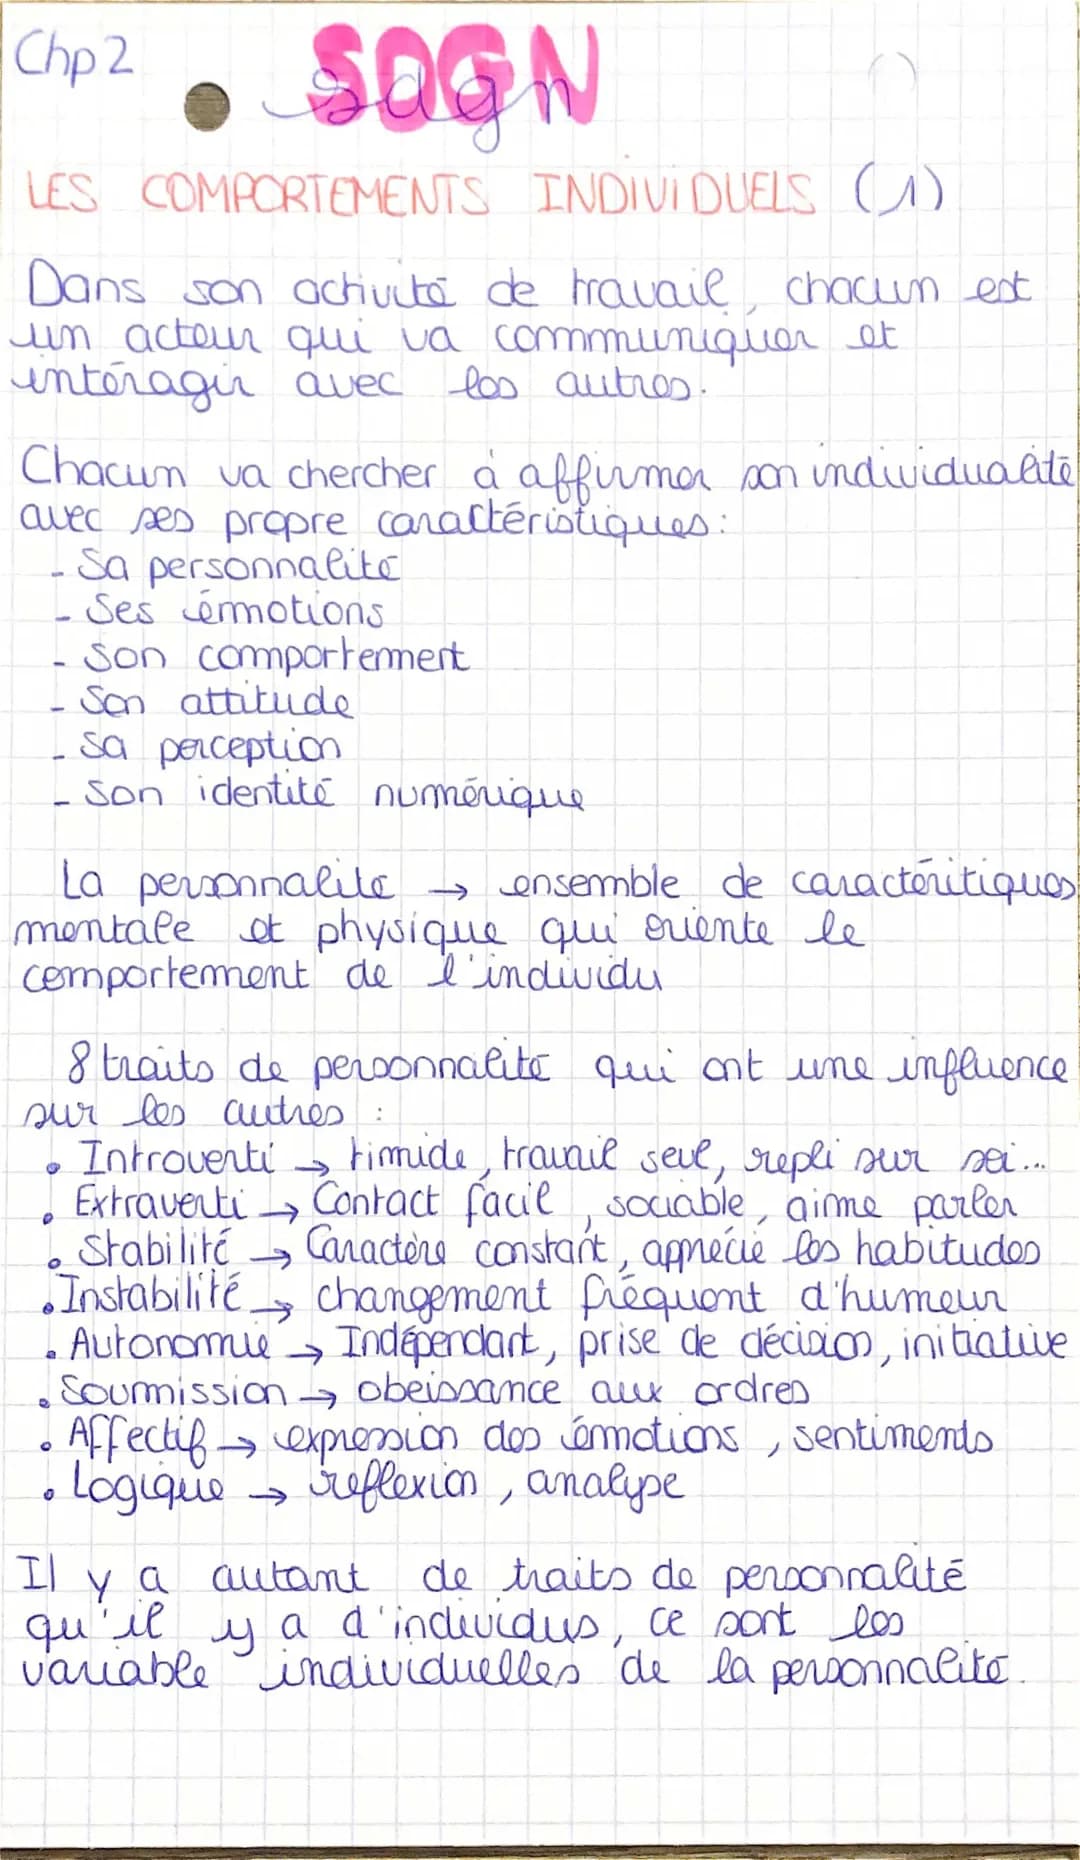 Chp 2
SDGN
sdgn
LES COMPORTEMENTS INDIVIDUELS (1)
Dans son activité de travail, chacun est
un acteur qui va communiquer et
intéragir avec les autres.
Chacun va chercher à affirmer son individualité
avec ses propre caractéristiques :
- Sa personnalité
- Ses émotions
- Son comportement
- Son attitude
- Sa perception
- Son identité numérique
La personnalité → ensemble de caractéritiques
mentale et physique qui oriente le
comportement de l'individu
8 traits de personnalité qui ont une influence
sur les autres :
• Introverti → timide, travail seul, repli sur soi...
• Extraverti → Contact facil, sociable, aime parler
• Stabilité → Caractère constant, apprécie les habitudes
• Instabilité → changement fréquent d'humeur
• Autonomie → Indépendant, prise de décision, initiative
• Soumission → obeissance aux ordres
• Affectif → expression des émotions, sentiments
• Logique → reflexion, analyse
Il y a autant de traits de personnalité
qu'il y a d'individus, ce sont les
variable individuelles de la personnalité.